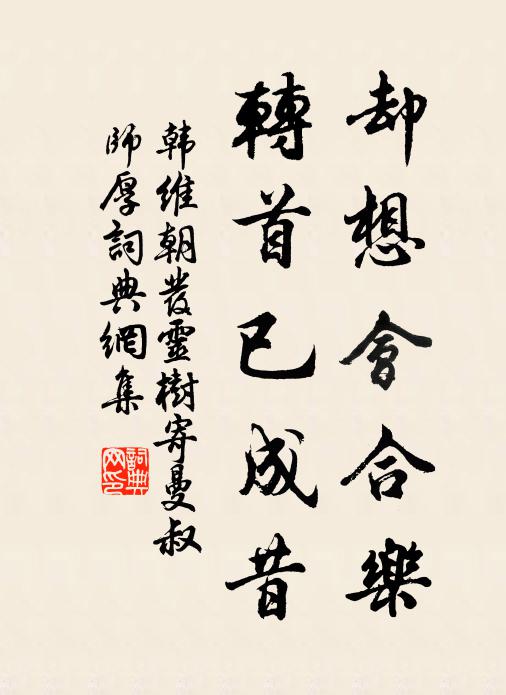 却想會合樂
轉首已成昔
韩維朝發靈樹寄曼叔
師厚詞典網集
詞典网印